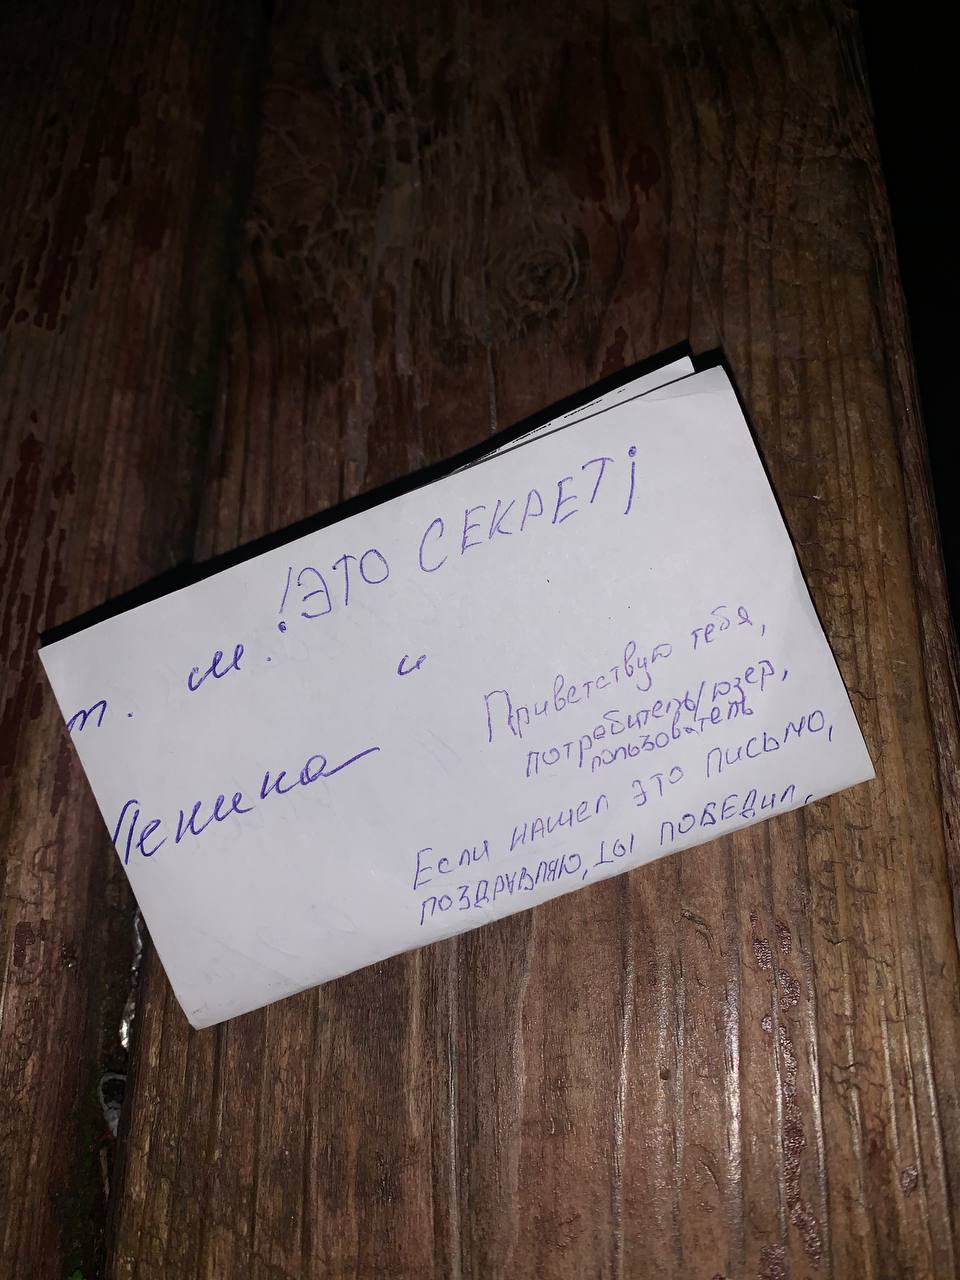 !ЭТО СЕКРЕТ¡
т. м. и
Ленина
Приветствую тебя,
потребитель/юзер,
пользователь
Если нашел это письмо,
поздравляю, ты победил.